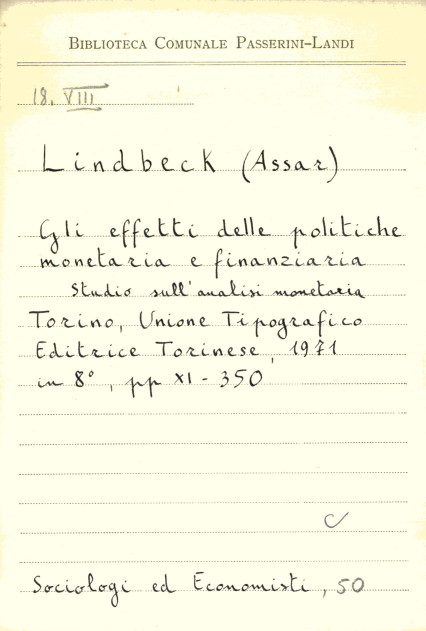 BIBLIOTECA COMUNALE PASSERINI-LANDI
18. VIII
Lindbeck (Assar)
Gli effetti delle politiche
monetaria e finanziaria
Studio sull'analisi monetaria
Torino, Unione Tipografico
Editrice Torinese, 1971
in 8°, pp XI - 350
C
Sociologi ed Economisti, 50